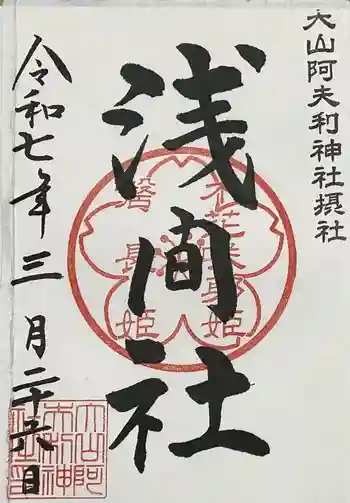 大山阿夫利神社摂社
浅間社
木花咲耶姫
磐長姫
令和七年三月二十六日
大山阿
夫利神